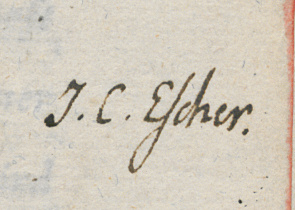 J. C. Eſcher.